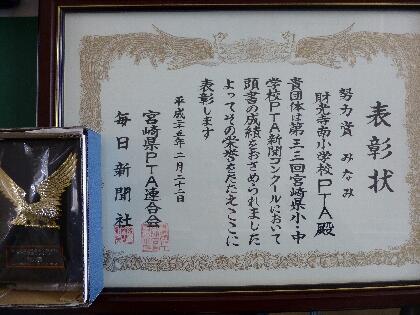 表彰状
努力賞 みなみ
財光寺南小学校PTA殿
貴団体は第三三回宮崎県小・中
学校PTA新聞コンクールにおいて
頭書の成績をおさめられました
よってその栄誉をたたえここに
表彰します
平成二十五年二月二十二日
宮崎県PTA連合会
毎日新聞社